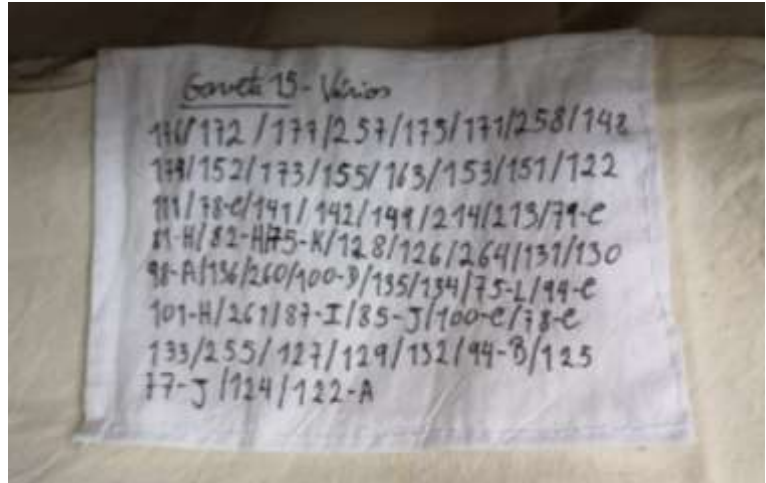 Gaveta 15 - Vários
176/172/177/257/175/171/258/148
174/152/173/155/163/153/151/122
111/78-C/141/142/149/214/213/79-C
81-H/82-H/75-K/128/126/264/131/130
98-A/136/260/100-D/135/134/75-L/94-C
101-H/261/87-I/85-J/100-C/78-C
133/255/127/129/132/94-B/125
77-J/124/122-A